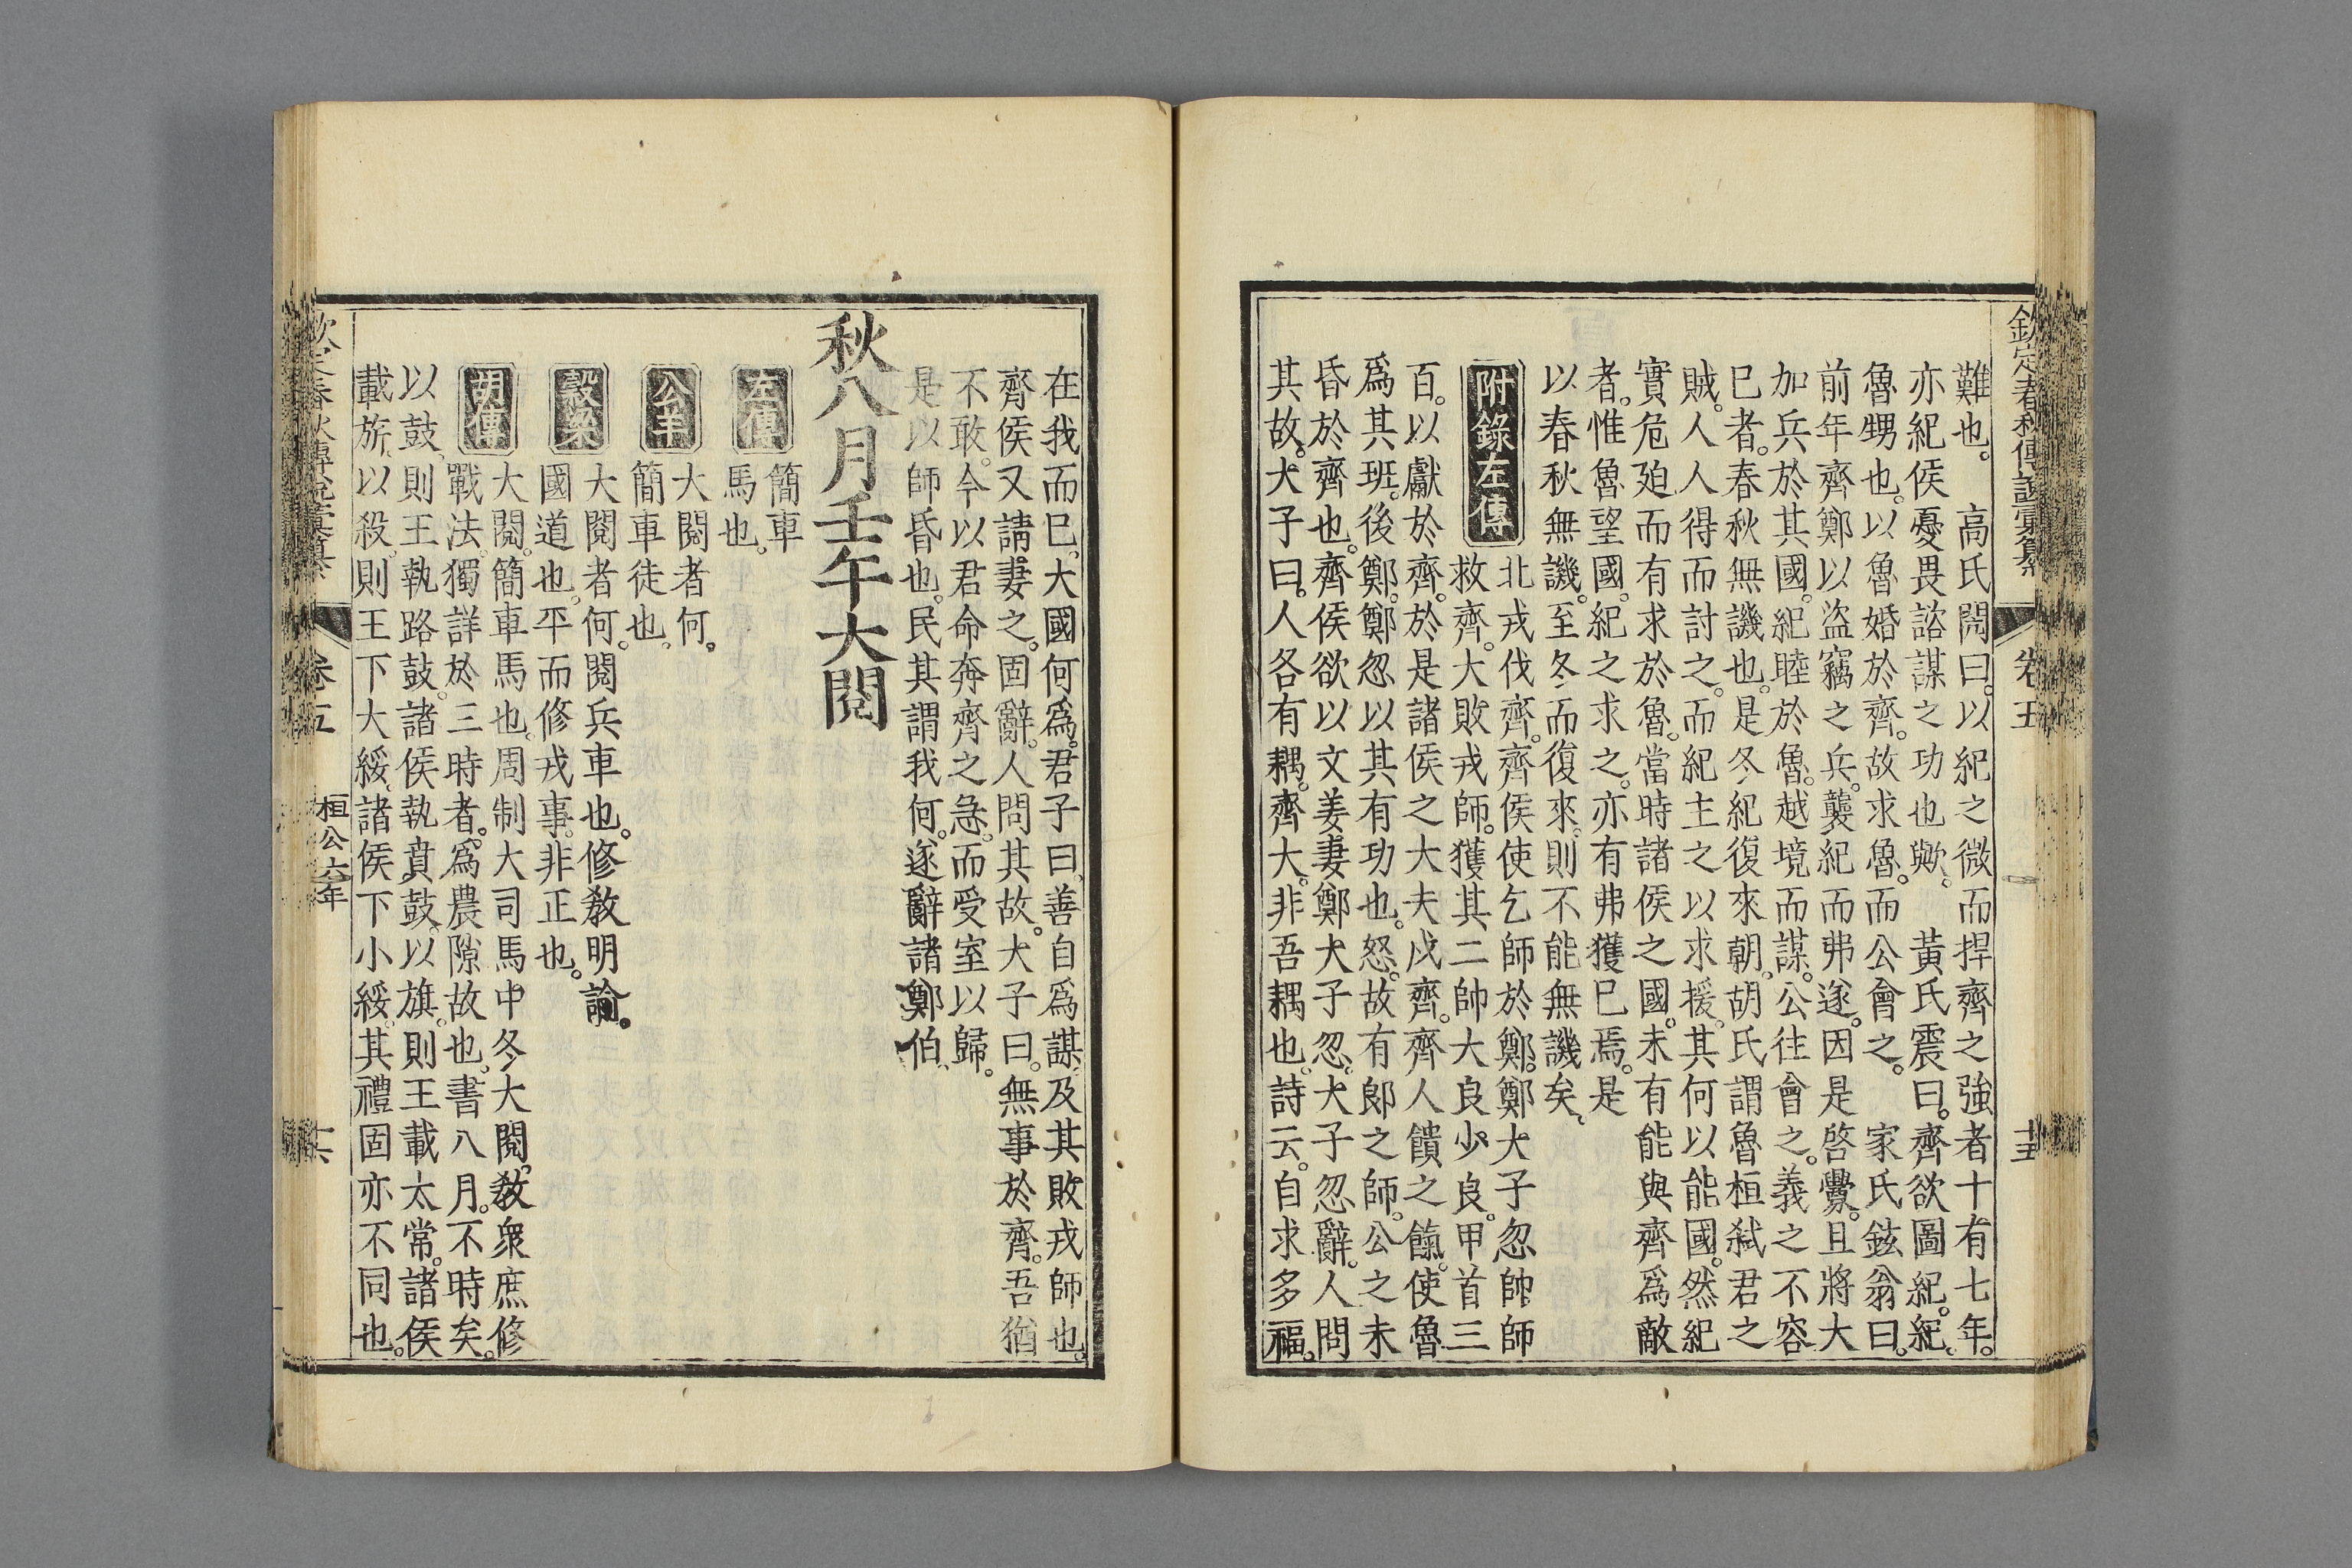 欽定春秋傳說彙纂 卷五 十五
難也。 高氏閌曰。以紀之微而捍齊之強者十有七年。
亦紀侯憂畏諮謀之功也歟。 黃氏震曰。齊欲圖紀。紀
魯甥也。以魯婚於齊。故求魯。而公會之。 家氏鉉翁曰。
前年齊鄭以盜竊之兵。襲紀而弗遂。因是啓釁。且將大
加兵於其國。紀睦於魯。越境而謀。公往會之。義之不容
已者。春秋無譏也。是冬紀復來朝。胡氏謂魯桓弒君之
賊。人人得而討之。而紀主之以求援。其何以能國。然紀
實危廹而有求於魯。當時諸侯之國。未有能與齊爲敵
者。惟魯望國。紀之求之。亦有弗獲已焉。是
以春秋無譏。至冬而復來。則不能無譏矣。
附錄左傳 北戎伐齊。齊侯使乞師於鄭。鄭大子忽帥師
救齊。大敗戎師。獲其二帥大良。少良。甲首三
百。以獻於齊。於是諸侯之大夫戍齊。齊人饋之餼。使魯
爲其班。後鄭。鄭忽以其有功也。怒。故有郎之師。公之未
昏於齊也。齊侯欲以文姜妻鄭大子忽。大子忽辭。人問
其故。大子曰。人各有耦。齊大。非吾耦也。詩云。自求多福。
在我而已。大國何爲。君子曰。善自爲謀。及其敗戎師也。
齊侯又請妻之。固辭。人問其故。大子曰。無事於齊。吾猶
不敢。今以君命奔齊之急。而受室以歸。
是以師昏也。民其謂我何。遂辭諸鄭伯。
秋八月壬午大閱
左傳 簡車
馬也。
公羊 大閱者何。
簡車徒也。
穀梁 大閱者何。閱兵車也。修教明諭。
國道也。平而修戎事。非正也。
胡傳 大閱。簡車馬也。周制大司馬。中冬大閱。教衆庶修
戰法。獨詳於三時者。爲農隙故也。書八月。不時矣。
以鼓。則王執路鼓。諸侯執賁鼓。以旗。則王載太常。諸侯
載旂。以殺。則王下大綏。諸侯下小綏。其禮固亦不同也。
欽定春秋傳說彙纂 卷五 桓公六年 十六